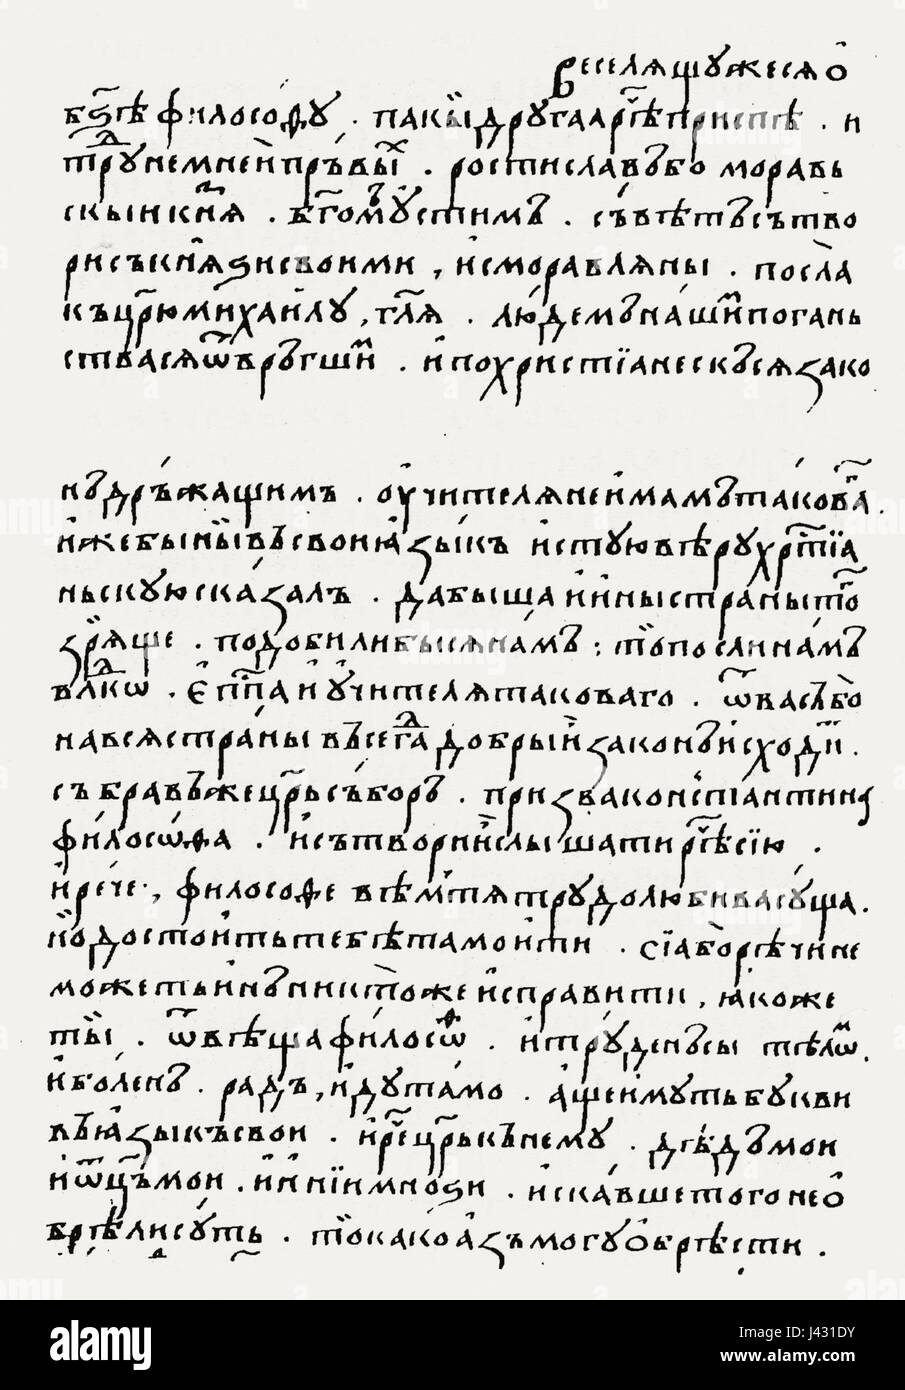 веселящужесяѻ
бѕ҃ѣ философу · пакыдругаярѣ҃чприспѣ · и
трⷣунемнеиꙵпръвыⷯ · ростиславъбо моравь
скыикнѧ҃ꙁь · бг҃омъустимъ · съвѣтъсътво
рисъкнѧѕисвоими , исморавляны · посла
къцр҃юмихаилу , гл҃я · людемънашиⷨпогань
ствасяѿвръгшиⷨ · ипохристїанескъсязако
нъдръжащимъ · оучителянеимамътаковаⷢ .
ижебыныⷡвъсвоиязыкъ истуювѣрухрⷭ҇тїа
ньскуюсказалъ · дабыщаииныстранытоⷢ
зрⷶяще · подобилибысянамъ : тоⷤпослинамъ
влⷣко · еп҃паиучителятаковаго · ѿвасъбо
навсястранывъсегⷣадобрыизаконъисходиⷮ .
събравъжецр҃ьсъборъ · призваконстантина
философа · исътворислышатирѣ҃чсїю .
ирече , философе вѣмьтятрудолюбивасуща .
ноⷣдостоитьтебѣтамоити · сїаборѣчине
можетьинъниктожеисправити , якоже
ты · ѿвѣщафилософ · итруденъсы тѣлоⷨ .
иболенъ · радъ , идутамо · ащеимутьбукви
въязыксвои · иреⷱцр҃ькънему · дѣдъмои
иѿц҃ьмои · ииниимноѕи · искавшетогонео
брѣлисуть · тоⷤкакоазъмогуобрѣсти .
alamy
Image ID: J431DY
www.alamy.com